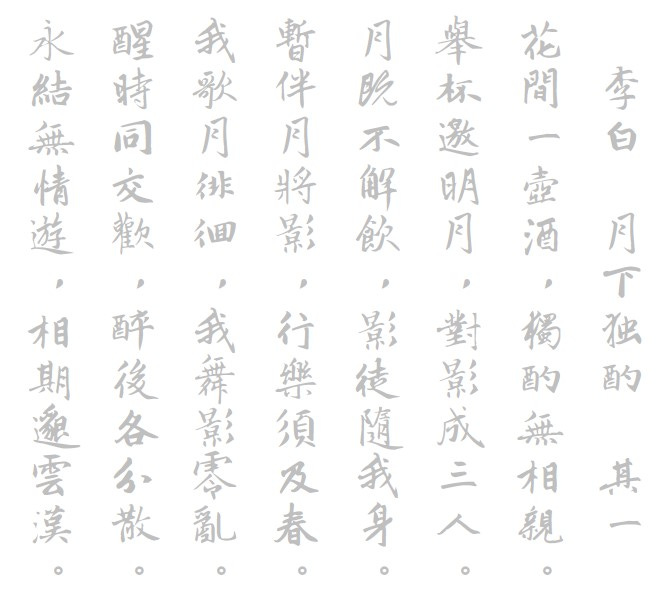 李白 月下独酌 其一
花間一壺酒，獨酌無相親。
舉杯邀明月，對影成三人。
月既不解飲，影徒隨我身。
暫伴月將影，行樂須及春。
我歌月徘徊，我舞影零亂。
醒時同交歡，醉後各分散。
永結無情遊，相期邈雲漢。